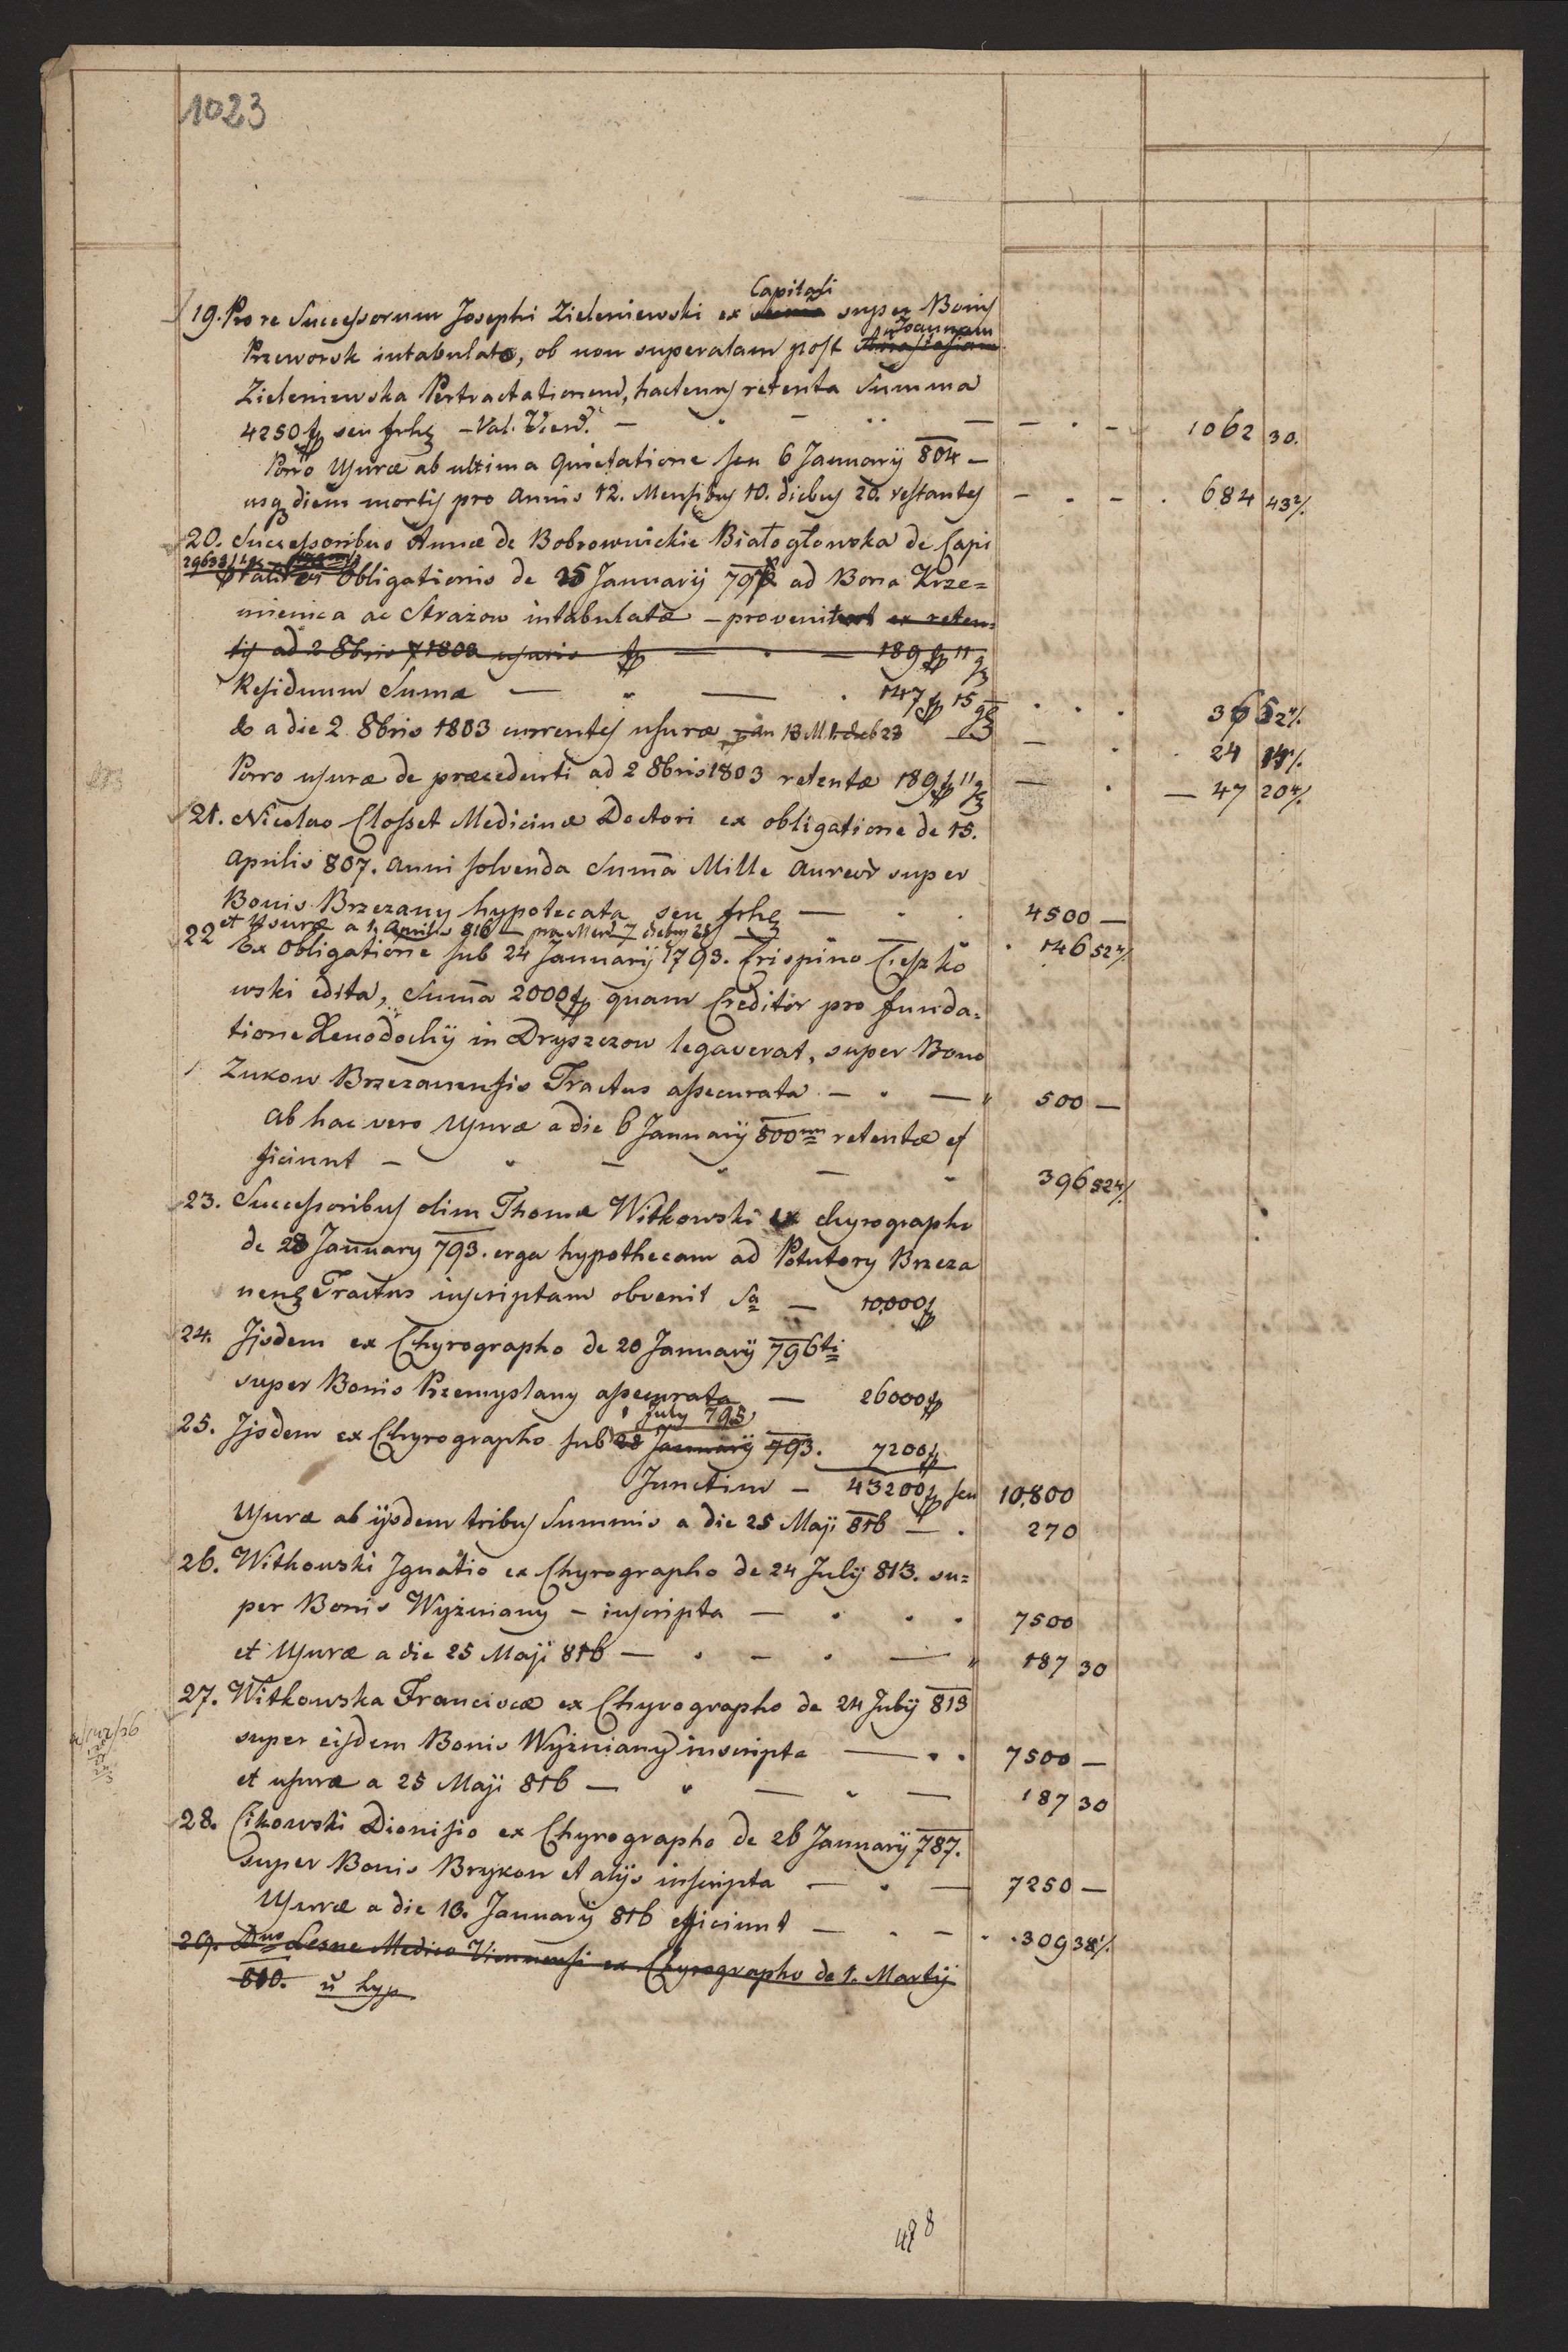 1023
Capitali
19. Pro re Successorum Josephi Zieleniewski ex summa super Bonis
Joannam
Przeworsk intabulato, ob non superatam post Anastasiam
Zieleniewska Pertractationem, hactenus retenta Summa
4250 fp seu frhe – Val. Vien. — 1062 30.
Porro Usuræ ab ultima Quietatione seu 6 Januarij 804 –
usq diem mortis pro Annis 12. Mensibus 10. diebus 20. restantes — 684 43 2/.
20. Successoribus Annæ de Bobrownickie Białogłowska de Capi
tali obligationis de 25 Januarij 797 ad Bona Krze=
mienica ac Strazow intabulatæ – provenit ex reten=
tis ad 2 8bris 1803 usuris fp — 189 fp 11 g
Residuum Sumæ — 147 fp 15 g — 36 52 2/.
do a die 2 8bris 1803 currentes usuræ — 24
Porro usuræ de præcedenti ad 2 8bris 1803 retentæ 189 fp 11 g — 47 20 4/.
21. Nicolao Closset Medicinæ Doctori ex obligatione de 15.
Aprilis 807. Anni solvenda Suma Mille Aureor super
Bonis Brzezany hypotecata seu frhe — 4500 —
et Usuræ a 1. Aprilis 816 — pro Mens 7 diebus 25 — 146 52 2/.
22 Ex Obligatione sub 24 Januarij 1793. Crispino Cieszko
wski edita, Suma 2000 fp quam Creditor pro funda=
tione Xenodochij in Dryszczow legaverat, super Bono
Zukow Brzezanensis Tractus assecurata — 500 —
Ab hac vero Usuræ a die 6 Januarij 800 retentæ ef
ficiunt — 396 52 4/.
23. Successoribus olim Thomæ Witkowski ex chyrographo
de 28 January 793. erga hypothecam ad Potutory Brzeza
nens Tractus inscriptam obvenit Sa — 10,000 fp
24. Ijsdem ex Chyrographo de 20 Januarij 796ti
super Bonis Przemyslany assecurata — 26000 fp
1 July 795
25. Ijsdem ex Chyrographo sub 28 Januarij 793. 7200 fp
Junctim — 43200 fp seu 10,800
Usuræ ab ijsdem tribus Summis a die 25 Maji 816 — 270
26. Witkowski Ignatio ex Chyrographo de 24 Julij 813. su=
per Bonis Wyżniany – inscripta — 7500
et Usuræ a die 25 Maji 816 — 187 30
27. Witkowska Franciscæ ex Chyrographo de 24 July 813
super eisdem Bonis Wyżniany inscripta — 7500 —
et usuræ a 25 Maji 816 — 187 30
28. Cikowski Dionisio ex Chyrographo de 26 Januarij 787.
super Bonis Brykow et alijs inscripta — 7250 —
Usuræ a die 13. Januarij 816 efficiunt — 309 38 1/.
29. Dno Lesne Medico Viennensi ex Chyrographo de 1. Martij
810. hyp